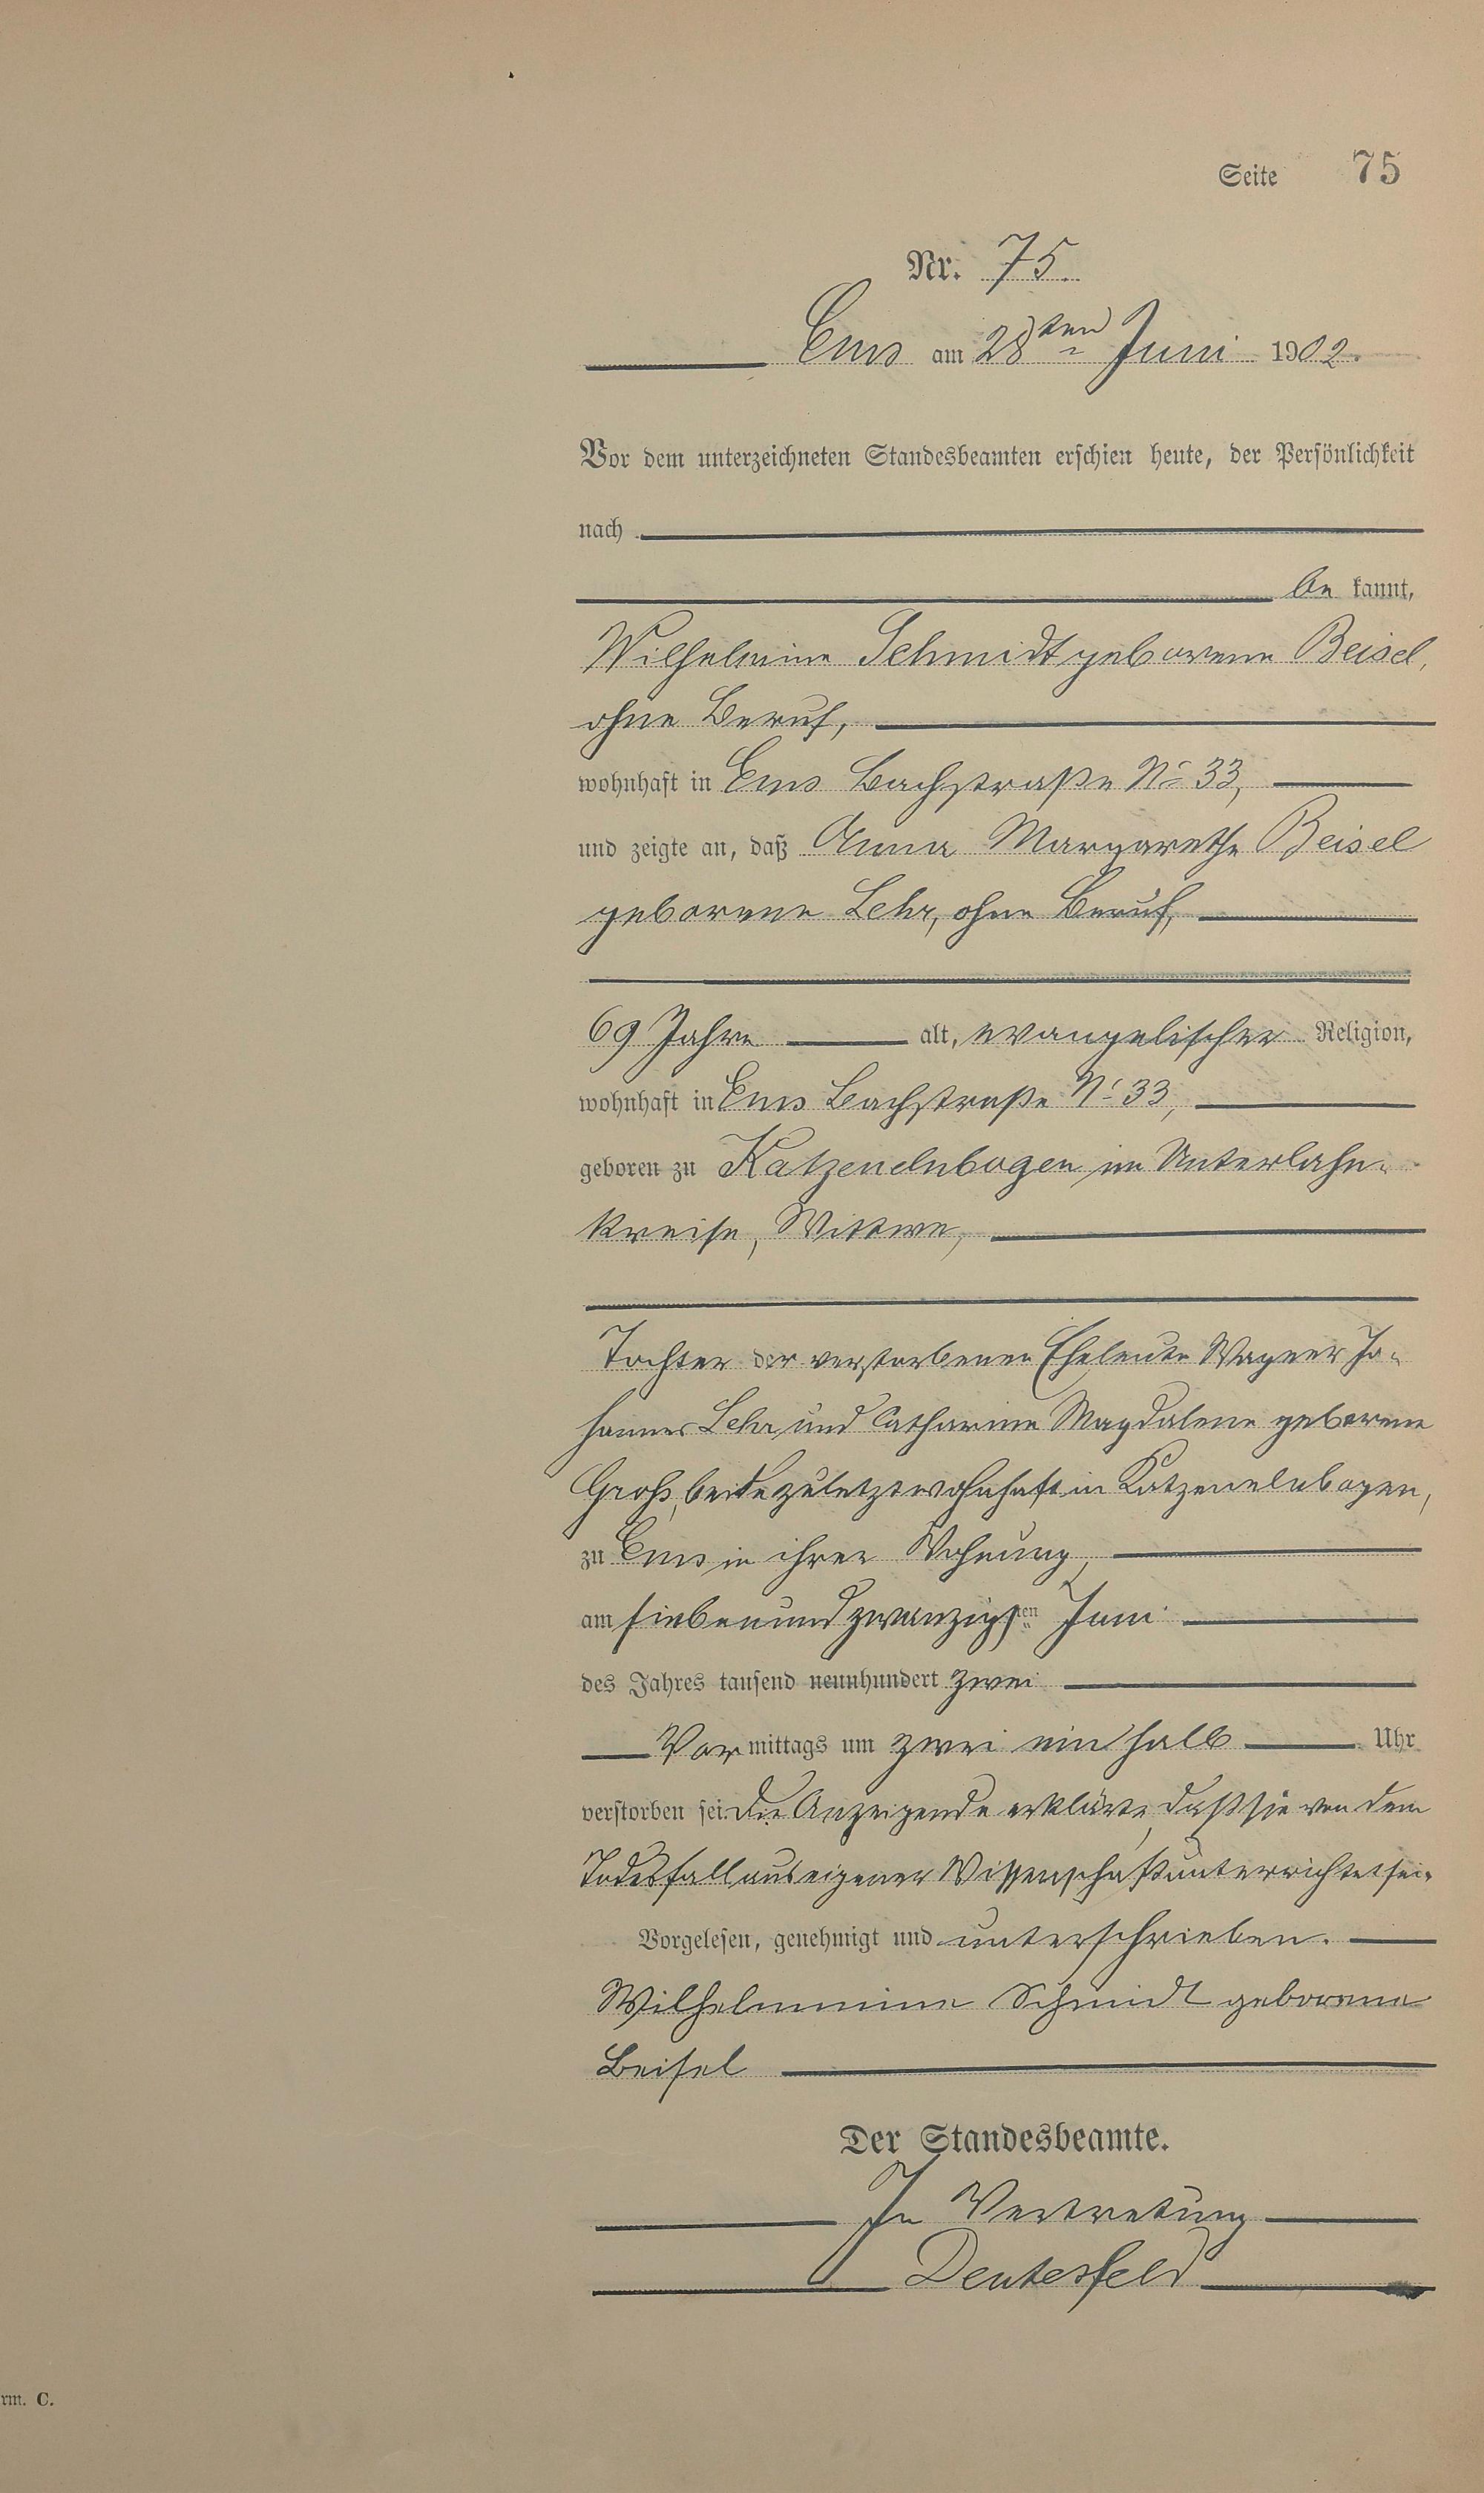 Seite 75
Nr. 75.
Ems am 28ten Juni 1902.
Vor dem unterzeichneten Standesbeamten erschien heute, der Persönlichkeit
nach
be kannt,
Wilhelmine Schmidt geborene Beisel,
ohne Beruf,
wohnhaft in Ems Bachstraße No 33,
und zeigte an, daß Anna Margarethe Beisel
geborene Lehr, ohne Beruf,
69 Jahre alt, evangelischer Religion,
wohnhaft in Ems Bachstraße No 33,
geboren zu Katzenelnbogen im Unterlahn-
kreise, Wittwe,
Tochter der verstorbenen Eheleute Wagner Jo-
hannes Lehr und Catharine Magdalene geborene
Groß, beide zuletzt wohnhaft in Katzenelnbogen,
zu Ems in ihrer Wohnung,
am siebenundzwanzigsten Juni
des Jahres tausend neunhundert zwei
Vormittags um zwei ein halb Uhr
verstorben sei. Die Anzeigende erklärte, daß sie von dem
Todesfall aus eigener Wissenschaft unterrichtet sei.
Vorgelesen, genehmigt und unterschrieben.
Wilhelmmine Schmidt geborene
Beisel
Der Standesbeamte.
In Vertretung
Deutesfeld
rm. C.